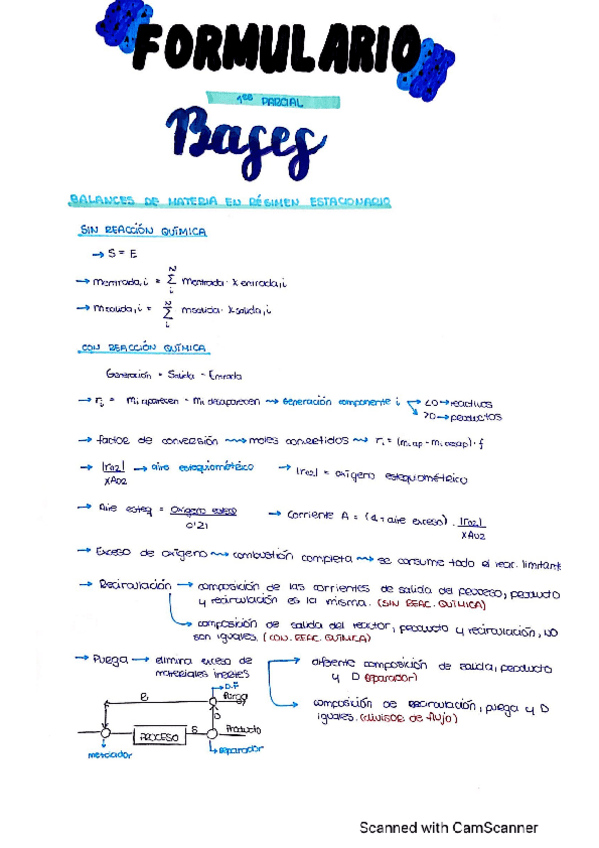 FORMULARIO
1er PARCIAL
Bases
BALANCES DE MATERIA EN RÉGIMEN ESTACIONARIO
SIN REACCIÓN QUÍMICA
→ S = E
→ mentrada,i = N Σ i mentrada · x entrada,i
→ msalida,i = N Σ i msalida · xsalida,i
CON REACCIÓN QUÍMICA
Generación = Salida - Entrada
→ ri = mi aparecen - mi desaparecen ⇝ Generación componente i → <0 → reactivos
>0 → productos
→ factor de conversión ⇝ moles convertidos ⇝ ri = (mi ap - mi desap) · f
→ |rO2| / XAO2 → aire estequiométrico → |rO2| = oxígeno estequiométrico
→ Aire esteq = Oxígeno esteq / 0'21 → Corriente A = (1 + aire exceso) · |rO2| / XAO2
→ Exceso de oxígeno ⇝ combustión completa ⇝ se consume todo el reac. limitant
→ Recirculación → composición de las corrientes de salida del proceso, producto
y recirculación es la misma. (SIN REAC. QUÍMICA)
→ composición de salida del reactor, producto y recirculación, NO
son iguales. (CON. REAC. QUÍMICA)
→ Purga → elimina exceso de
materiales inertes
→ diferente composición de salida, producto
y D (separador)
→ composición de recirculación, purga y D
iguales. (divisor de flujo)
D.F
R
Purga
D
PROCESO
S
Producto
mezclador
separador
Scanned with CamScanner